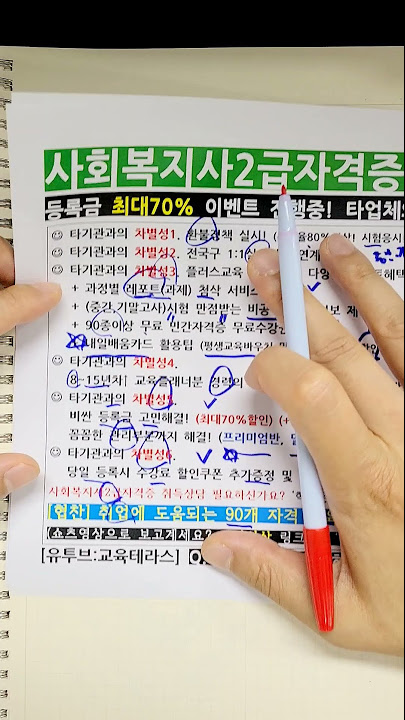 사회복지사2급자격증
등록금 최대70% 이벤트 진행중! 타업체
☺ 타기관과의 차별성1. 환불정책 실시! 율80% 시험응시
☺ 타기관과의 차별성2. 전국구 1:1 연계
☺ 타기관과의 차별성3. 플러스교육 다양 혜택
+ 과정별 레포트(과제) 첨삭 서비스
+ (중간,기말고사)시험 만점받는 비공 보 제
+ 90종이상 무료 "민간자격증" 무료수강
내일배움카드 활용팁 (평생교육바우처 및
☺ 타기관과의 차별성4.
8-15년차! 교육플래너분 경력의
☺ 타기관과의 차별성5.
비싼 등록금 고민해결! (최대70%할인) (+
꼼꼼한 관리부분까지 해결! (프리미엄반,
☺ 타기관과의 차별성6.
당일 등록시 수강료 할인쿠폰 추가증정 및
사회복지사2급자격증 취득상담 필요하신가요?
[협찬] 취업에 도움되는 90개 자격
(쇼츠영상으로 보고계세요? 상 링크
[유투브:교육테라스]